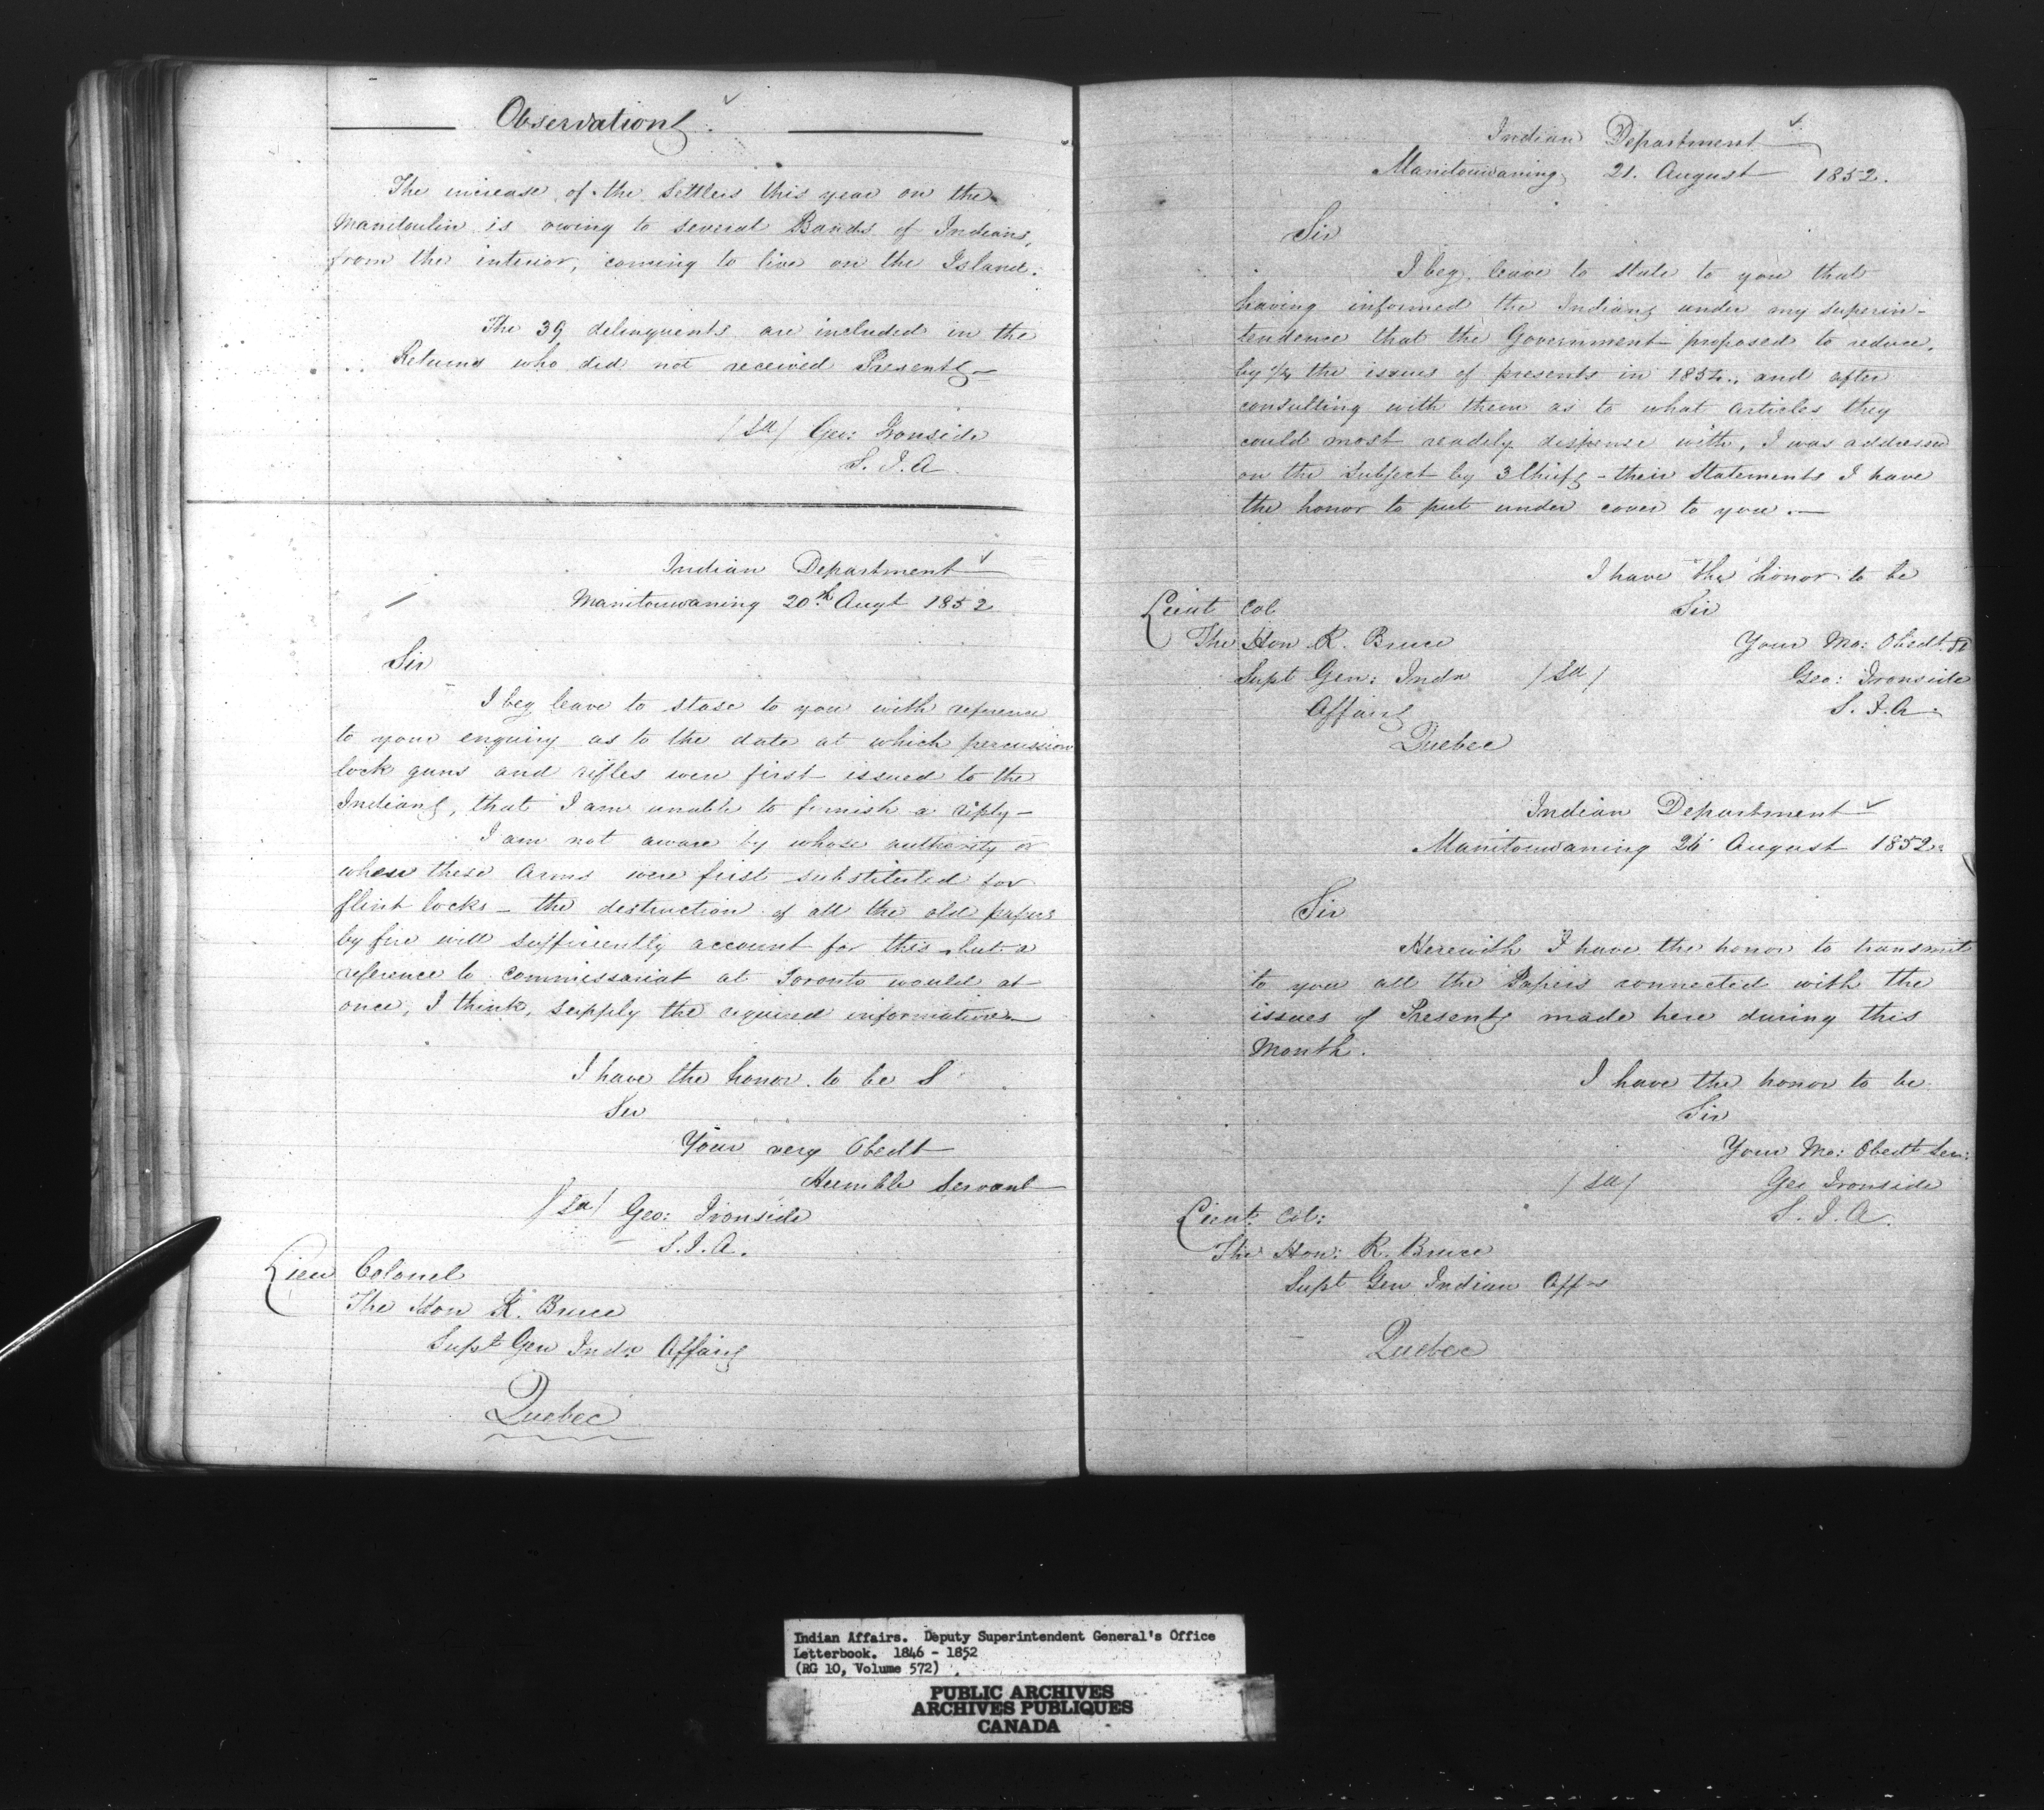 Observations.
The increase of the Settlers this year on the
Manitoulin is owing to several Bands of Indians,
from the interior, coming to live on the Island.
The 39 delinquents are included in the
Returns who did not received Presents—
/Sd/ Geo: Ironside
S. I. A.
Indian Department
Manitouwaning 20th Augt 1852
Sir
I beg leave to stase to you with reference
to your enquiry as to the date at which percussion
lock guns and rifles were first issued to the
Indians, that I am unable to furnish a reply—
I am not aware by whose authority or
when these Arms were first substituted for
flint locks — the destruction of all the old papers
by fire will sufficiently account for this, but a
reference to Commissariat at Toronto would at
once, I think, supply the required information—
I have the honor to be S
Sir
Your very Obedt
Humble Servant
/Sd/ Geo: Ironside
S. I. A.
Lieu Colonel
The Hon R. Bruce
Supt Gen Indn Affairs
Quebec
Indian Department
Manitouwaning 21. August 1852.
Sir
I beg leave to state to you that
having informed the Indians under my superin-
tendence that the Government proposed to reduce,
by 1/4 the issues of presents in 1854., and after
consulting with them as to what articles they
could most readily dispense with, I was addressed
on the Subject by 3 Chiefs - their Statements I have
the honor to put under cover to you.—
I have the honor to be
Sir
Lieut Col
The Hon R. Bruce
Your Mo: Obedt St
Supt Gen: Indn /Sd/ Geo: Ironside
Affairs
S. I. A.
Quebec
Indian Department
Manitouwaning 26 August 1852.
Sir
Herewith I have the honor to transmit
to you all the Papers connected with the
issues of Presents made here during this
Month.
I have the honor to be
Sir
Your Mo: Obedt Ser:
/Sd/ Geo Ironside
S. I. A.
Lieut. Col:
The Hon: R. Bruce
Supt Gen Indian Affrs
Quebec
Indian Affairs. Deputy Superintendent General's Office
Letterbook. 1846 - 1852
(RG 10, Volume 572)
PUBLIC ARCHIVES
ARCHIVES PUBLIQUES
CANADA